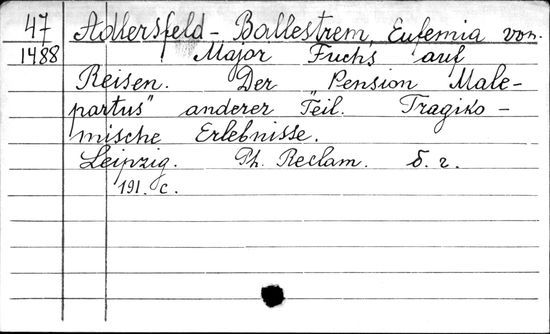 47 Adlersfeld - Ballestrem, Eufemia von.
1488 Major Fuchs auf
Reisen. Der „Pension Male-
partus" anderer Teil. Tragiko-
mische Erlebnisse.
Leipzig. Ph. Reclam. б. г.
191. с.